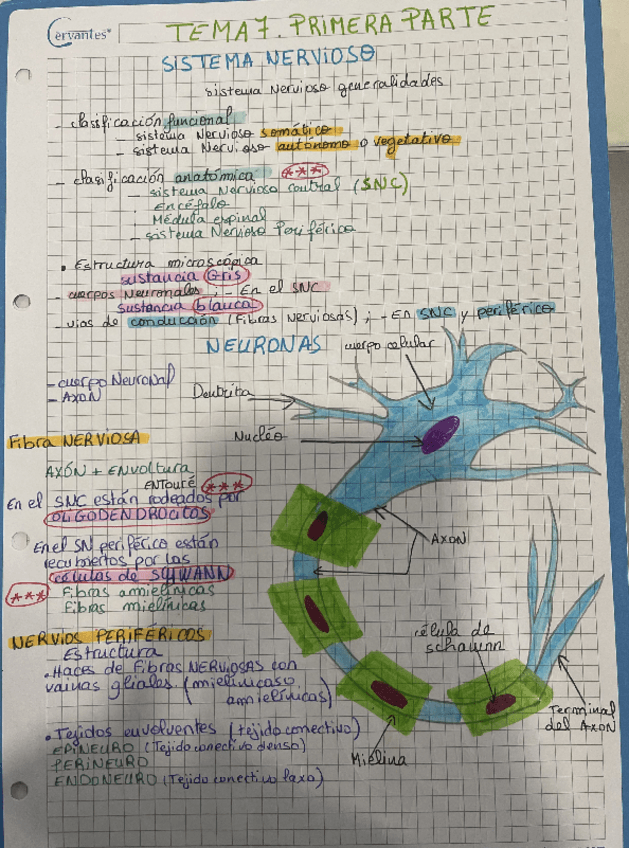 Cervantes
TEMA 7. PRIMERA PARTE
SISTEMA NERVIOSO
sistema Nervioso generalidades
- clasificación funcional
- sistema Nervioso somático
- sistema Nervioso autónomo o vegetativo
- clasificación anatómica ***
- sistema Nervioso central (SNC)
Encéfalo
Médula espinal
- sistema Nervioso Periférico
• Estructura microscópica
sustancia Gris
cuerpos Neuronales ; - En el SNC
Sustancia blanca
- vias de conducción (Fibras Nerviosas) ; - En SNC y periférico
NEURONAS
cuerpo celular
- cuerpo Neuronal
- AXON
Dentrita
Nucléo
Fibra NERVIOSA
AXÓN + ENvoltura
ENTOURÉ ***
En el SNC están rodeados por
OLIGODENDROCITOS
AXON
En el SN periférico están
recubiertos por las
células de SCHWANN
*** Fibras amielínicas
Fibras mielínicas
NERVIOS PERIFÉRICOS
Estructura
célula de
schawnn
• Haces de Fibras NERVIOSAS con
vainas gliales (mielínicas o
amielínicas)
Terminal
del AXON
• Tejidos envolventes (tejido conectivo)
EPINEURO (Tejido conectivo denso)
PERINEURO
Mielina
ENDONEURO (Tejido conectivo laxo)